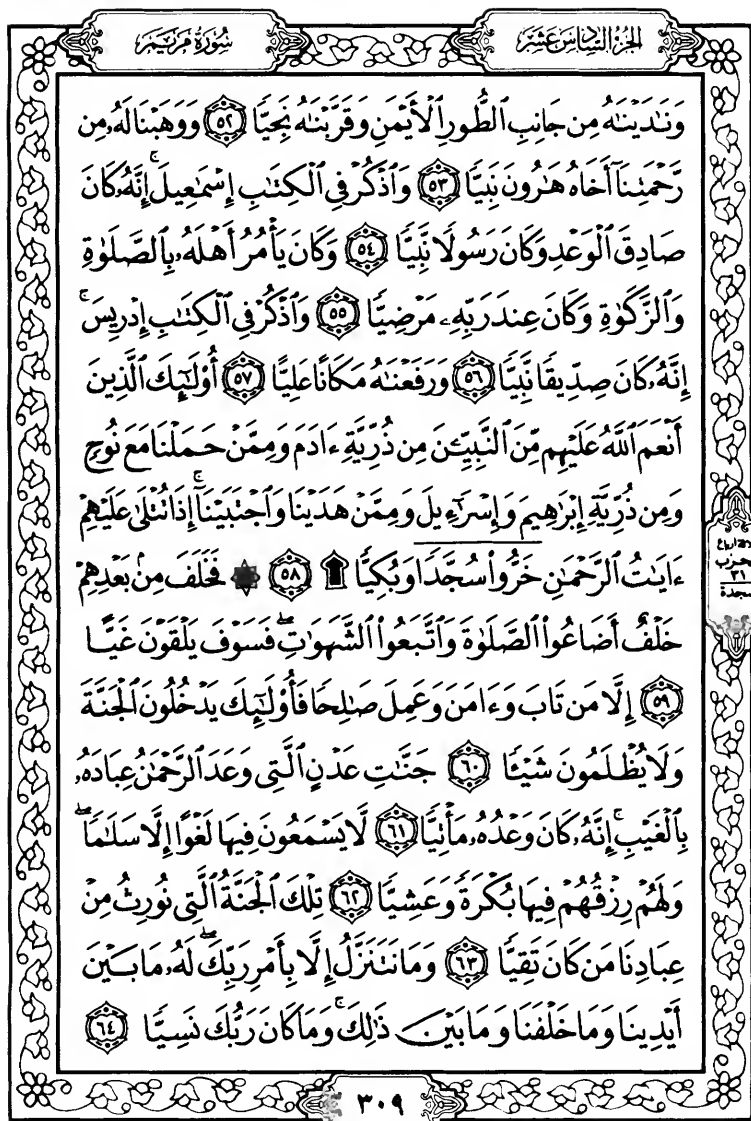 الجزء السادس عشر
سورة مريم
وَنَٰدَيْنَٰهُ مِن جَانِبِ ٱلطُّورِ ٱلْأَيْمَنِ وَقَرَّبْنَٰهُ نَجِيًّا ٥٢ وَوَهَبْنَا لَهُۥ مِن
رَّحْمَتِنَآ أَخَاهُ هَٰرُونَ نَبِيًّا ٥٣ وَٱذْكُرْ فِى ٱلْكِتَٰبِ إِسْمَٰعِيلَ ۚ إِنَّهُۥ كَانَ
صَادِقَ ٱلْوَعْدِ وَكَانَ رَسُولًا نَّبِيًّا ٥٤ وَكَانَ يَأْمُرُ أَهْلَهُۥ بِٱلصَّلَوٰةِ
وَٱلزَّكَوٰةِ وَكَانَ عِندَ رَبِّهِۦ مَرْضِيًّا ٥٥ وَٱذْكُرْ فِى ٱلْكِتَٰبِ إِدْرِيسَ ۚ
إِنَّهُۥ كَانَ صِدِّيقًا نَّبِيًّا ٥٦ وَرَفَعْنَٰهُ مَكَانًا عَلِيًّا ٥٧ أُو۟لَٰٓئِكَ ٱلَّذِينَ
أَنْعَمَ ٱللَّهُ عَلَيْهِم مِّنَ ٱلنَّبِيِّـۧنَ مِن ذُرِّيَّةِ ءَادَمَ وَمِمَّنْ حَمَلْنَا مَعَ نُوحٍ
وَمِن ذُرِّيَّةِ إِبْرَٰهِيمَ وَإِسْرَٰٓءِيلَ وَمِمَّنْ هَدَيْنَا وَٱجْتَبَيْنَآ ۚ إِذَا تُتْلَىٰ عَلَيْهِمْ
ءَايَٰتُ ٱلرَّحْمَٰنِ خَرُّوا۟ سُجَّدًا وَبُكِيًّا ۩ ٥٨ ۞ فَخَلَفَ مِنۢ بَعْدِهِمْ
خَلْفٌ أَضَاعُوا۟ ٱلصَّلَوٰةَ وَٱتَّبَعُوا۟ ٱلشَّهَوَٰتِ ۖ فَسَوْفَ يَلْقَوْنَ غَيًّا
٥٩ إِلَّا مَن تَابَ وَءَامَنَ وَعَمِلَ صَٰلِحًا فَأُو۟لَٰٓئِكَ يَدْخُلُونَ ٱلْجَنَّةَ
وَلَا يُظْلَمُونَ شَيْـًٔا ٦٠ جَنَّٰتِ عَدْنٍ ٱلَّتِى وَعَدَ ٱلرَّحْمَٰنُ عِبَادَهُۥ
بِٱلْغَيْبِ ۚ إِنَّهُۥ كَانَ وَعْدُهُۥ مَأْتِيًّا ٦١ لَّا يَسْمَعُونَ فِيهَا لَغْوًا إِلَّا سَلَٰمًا ۖ
وَلَهُمْ رِزْقُهُمْ فِيهَا بُكْرَةً وَعَشِيًّا ٦٢ تِلْكَ ٱلْجَنَّةُ ٱلَّتِى نُورِثُ مِنْ
عِبَادِنَا مَن كَانَ تَقِيًّا ٦٣ وَمَا نَتَنَزَّلُ إِلَّا بِأَمْرِ رَبِّكَ ۖ لَهُۥ مَا بَيْنَ
أَيْدِينَا وَمَا خَلْفَنَا وَمَا بَيْنَ ذَٰلِكَ ۚ وَمَا كَانَ رَبُّكَ نَسِيًّا ٦٤
أرباع
الحزب
٣١
سجدة
٣٠٩